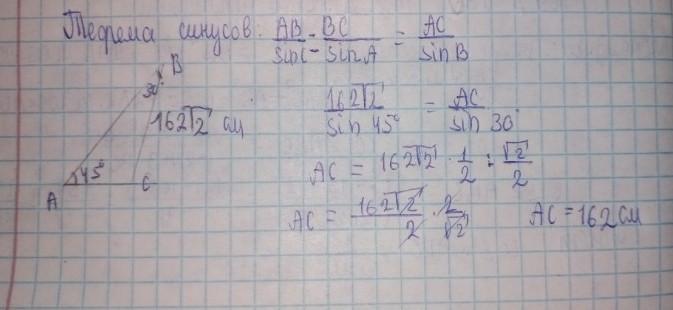 Теорема синусов: AB/sinC = BC/sinA = AC/sinB
B
30°
162√2 см
45°
A
C
162√2/sin 45° = AC/sin 30°
AC = 162√2 · 1/2 : √2/2
AC = 162√2/2 · 2/√2
AC = 162 см